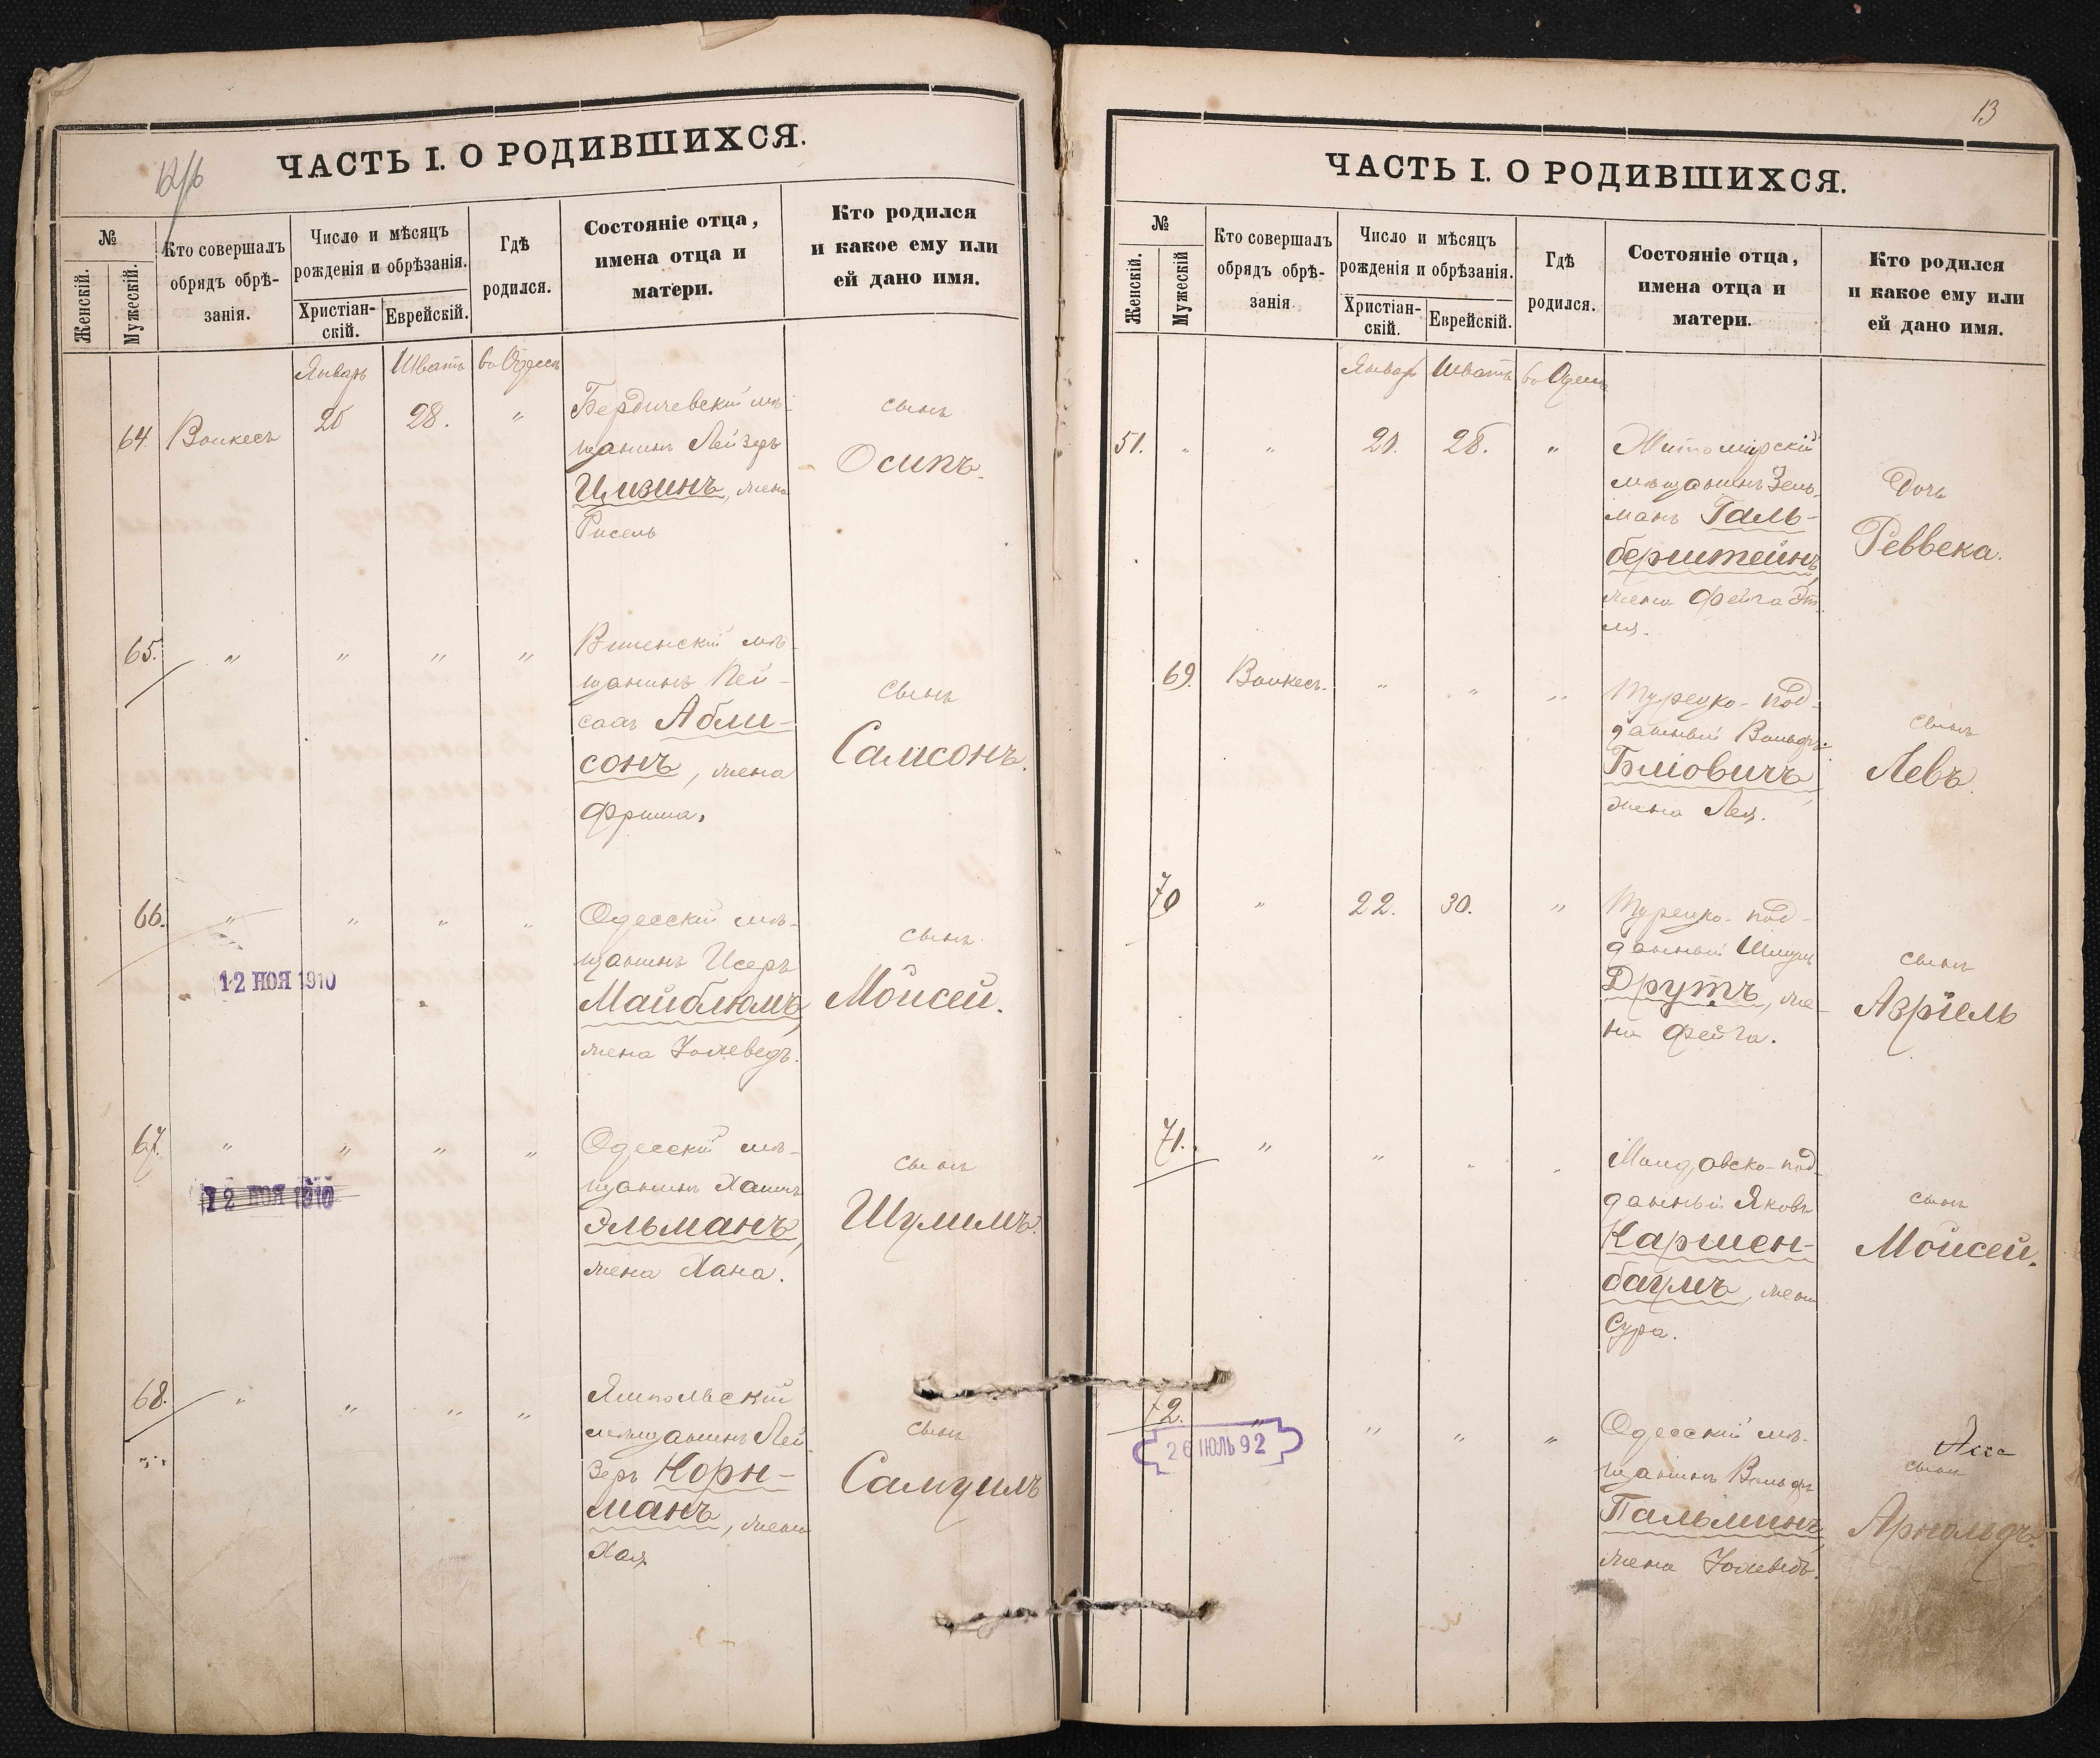 ЧАСТЬ I. О РОДИВШИХСЯ.
№
Женскій.
Мужескій.
Кто совершалъ
обрядъ обрѣ-
занія.
Число и мѣсяцъ
рожденія и обрѣзанія.
Христіан-
скій.
Еврейскій.
Гдѣ
родился.
Состояніе отца,
имена отца и
матери.
Кто родился
и какое ему или
ей дано имя.
Январь Шватъ во Одессѣ
64. 20 28. "
Бердичевскій мѣ-
щанинъ Лейзеръ
Цизинъ, жена
Рисель
сынъ
Осипъ.
65. " " " "
мѣ-
щанинъ Пей-
сахъ Абли-
сонъ, жена
Фрима.
сынъ
Самсонъ.
66. " " " "
12 НОЯ 1910
Одесскій мѣ-
щанинъ Исеръ
Майблюмъ,
жена Іохеведъ.
сынъ
Мойсей.
67. " " " "
12 НОЯ 1910
Одесскій мѣ-
щанинъ Хаимъ
Эльманъ,
жена Хана.
сынъ
Шулимъ.
68. " " " "
Ямпольскій
мѣщанинъ Лей-
зеръ Корн-
манъ, жена
Хая
сынъ
Самуилъ
13
ЧАСТЬ I. О РОДИВШИХСЯ.
№
Женскій.
Мужескій
Кто совершалъ
обрядъ обрѣ-
занія
Число и мѣсяцъ
рожденія и обрѣзанія.
Христіан-
скій.
Еврейскій.
Гдѣ
родился.
Состояніе отца,
имена отца и
матери.
Кто родился
и какое ему или
ей дано имя.
Январь Шватъ во Одессѣ
51. " " 20. 28. "
Житомірскій
мѣщанинъ Зель-
манъ Галь-
берштейнъ,
жена Фейга Эт-
ля.
Дочь
Реввека.
69. " " "
Турецко-под-
данный Вольфъ
жена Лея.
сынъ
Левъ.
70 " 22. 30. "
Турецко-под-
данный Шмуль
Друтъ, же-
на Фейга.
сынъ
Азріель
71. " " " "
Молдовско-под
данный Яковъ
Каршен-
баумъ, жена
Сура.
сынъ
Мойсей.
72. " " " "
26 ІЮЛЬ 92
Одесскій мѣ-
щанинъ Вольфъ
Пальминъ,
жена Іохеведъ.
сынъ
Арнольдъ.